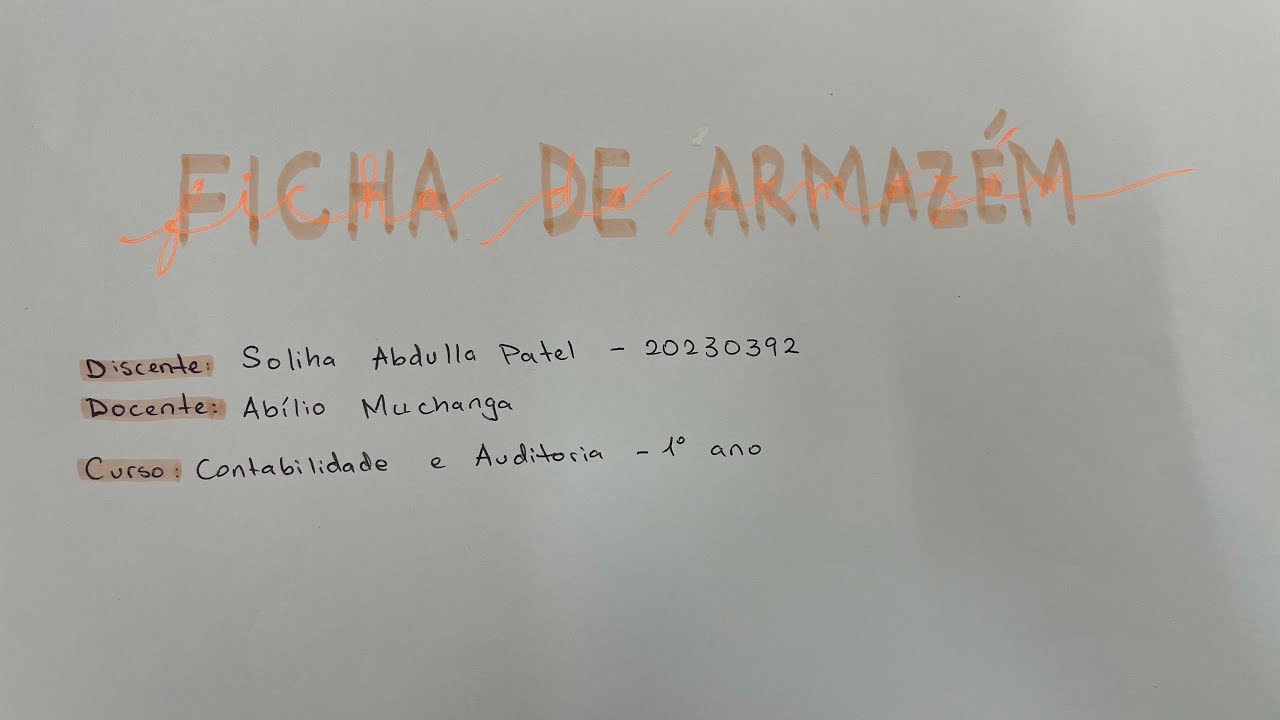 FICHA DE ARMAZÉM
ficha de armazém
Discente: Soliha Abdulla Patel - 20230392
Docente: Abílio Muchanga
Curso: Contabilidade e Auditoria - 1º ano